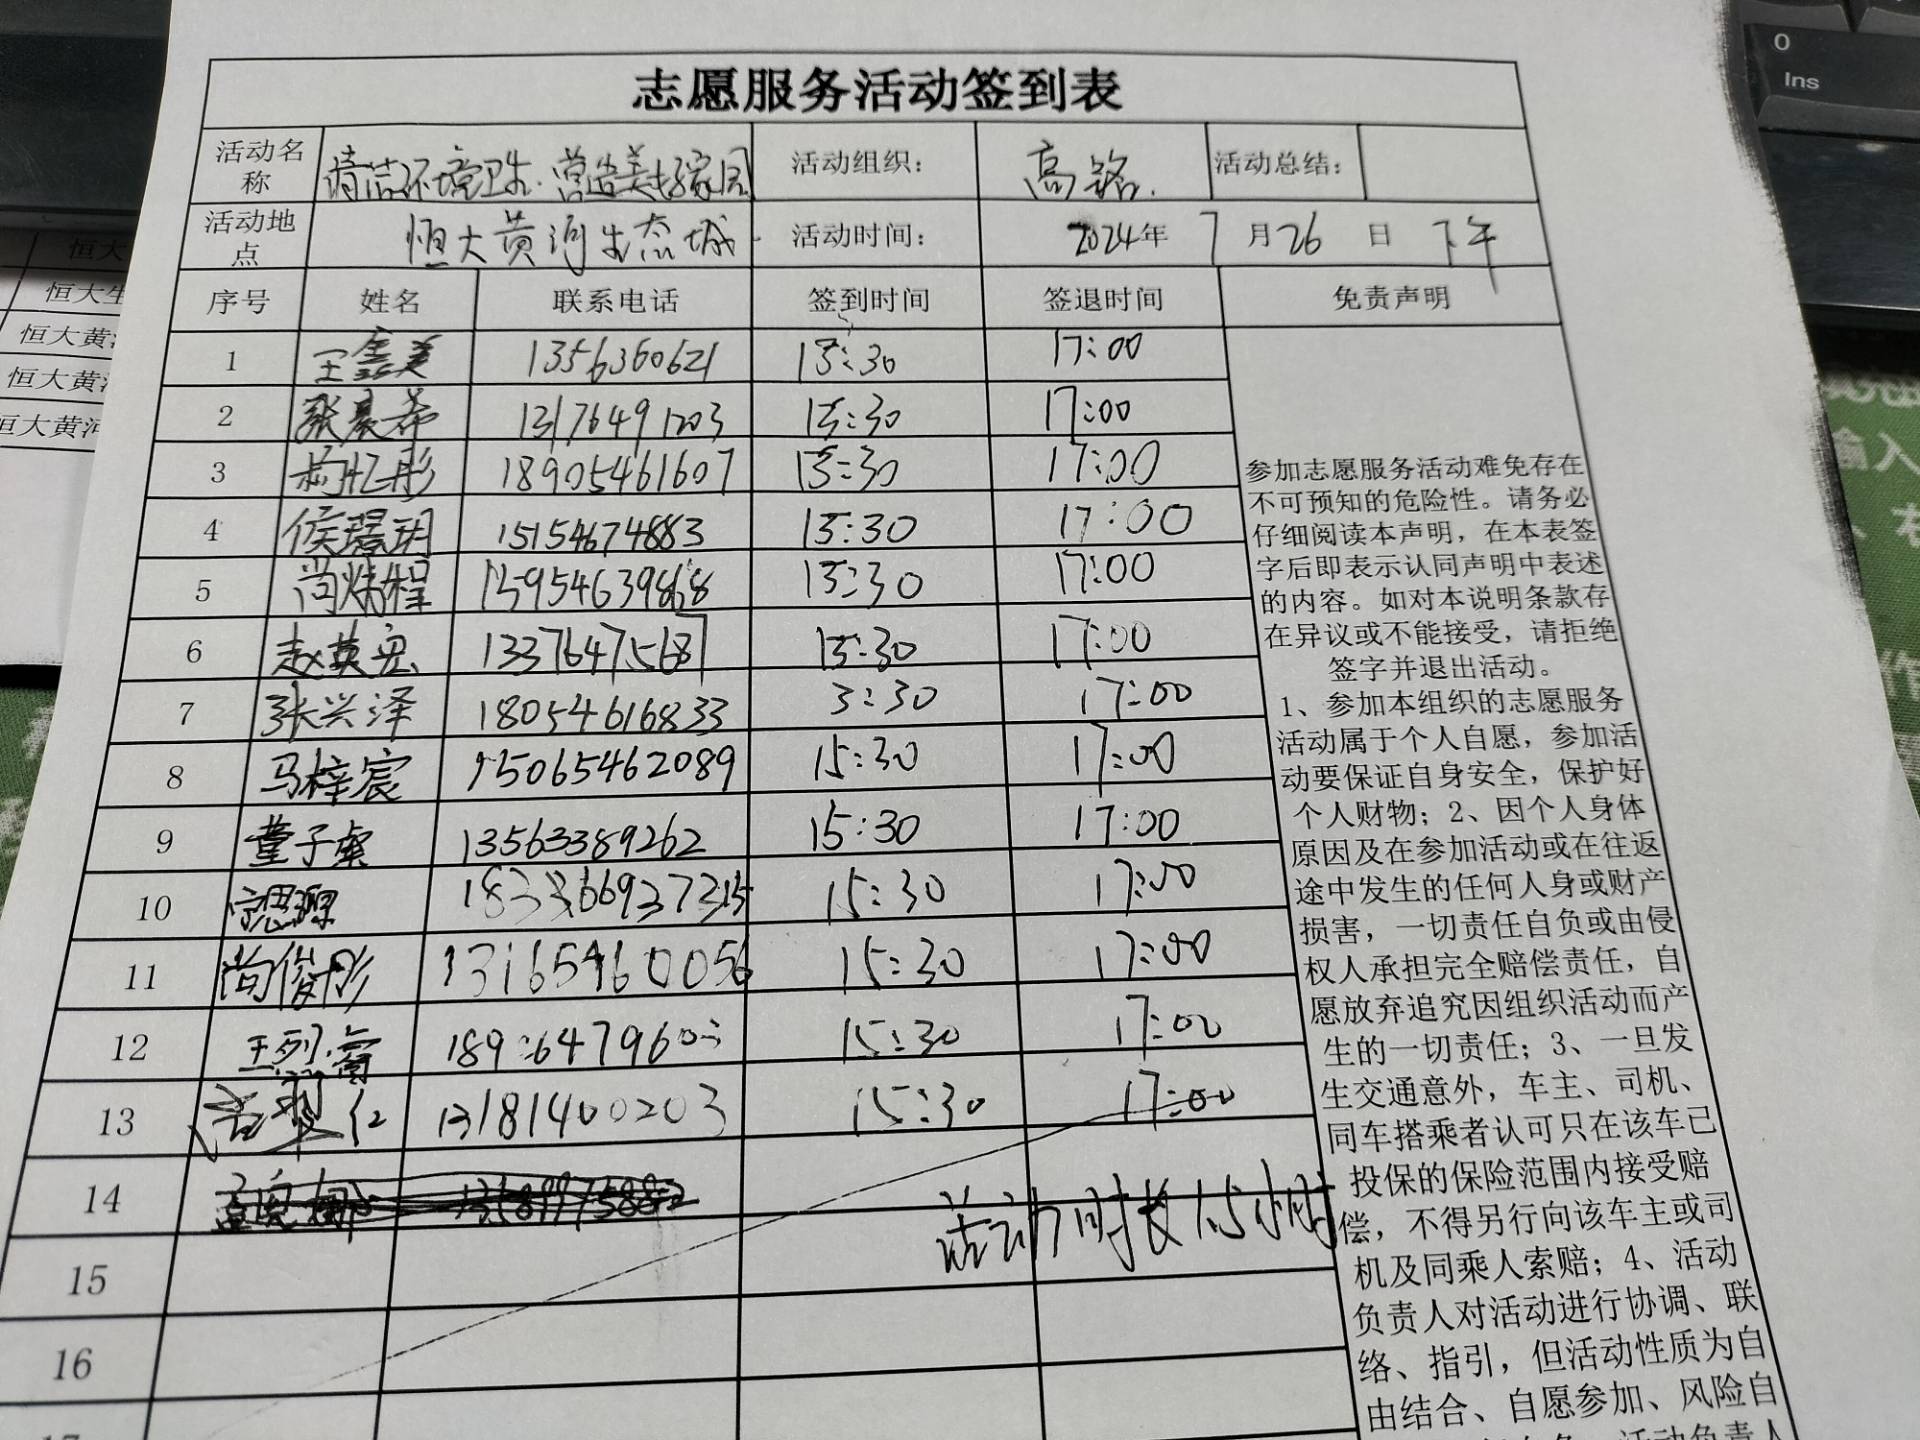 志愿服务活动签到表
活动名称 清洁环境卫生.营造美好家园 活动组织: 高铭. 活动总结:
活动地点 恒大黄河生态城 活动时间: 2024年 7月26日 下午
序号 姓名 联系电话 签到时间 签退时间 免责声明
1 王鑫美 1356360621 15:30 17:00
2 张宸希 13176491203 15:30 17:00
3 尚忆彤 18905461607 15:30 17:00
4 侯璟玥 15154674883 15:30 17:00
5 尚炳程 15954639868 15:30 17:00
6 赵英宏 13376475687 15:30 17:00
7 张兴泽 18054616833 3:30 17:00
8 马梓宸 15065462089 15:30 17:00
9 董子粲 13563389262 15:30 17:00
10 思源 15:30 17:00
11 尚俊彤 13165460056 15:30 17:00
12 王烈 15:30 17:00
13 13181400203 15:30 17:00
14
活动时长1.5小时
15
16
17
参加志愿服务活动难免存在
不可预知的危险性。请务必
仔细阅读本声明，在本表签
字后即表示认同声明中表述
的内容。如对本说明条款存
在异议或不能接受，请拒绝
签字并退出活动。
1、参加本组织的志愿服务
活动属于个人自愿，参加活
动要保证自身安全，保护好
个人财物；2、因个人身体
原因及在参加活动或在往返
途中发生的任何人身或财产
损害，一切责任自负或由侵
权人承担完全赔偿责任，自
愿放弃追究因组织活动而产
生的一切责任；3、一旦发
生交通意外，车主、司机、
同车搭乘者认可只在该车已
投保的保险范围内接受赔
偿，不得另行向该车主或司
机及同乘人索赔；4、活动
负责人对活动进行协调、联
络、指引，但活动性质为自
由结合、自愿参加、风险自
活动负责人
恒大
恒大生
恒大黄
恒大黄河
恒大黄河
0
Ins
输入